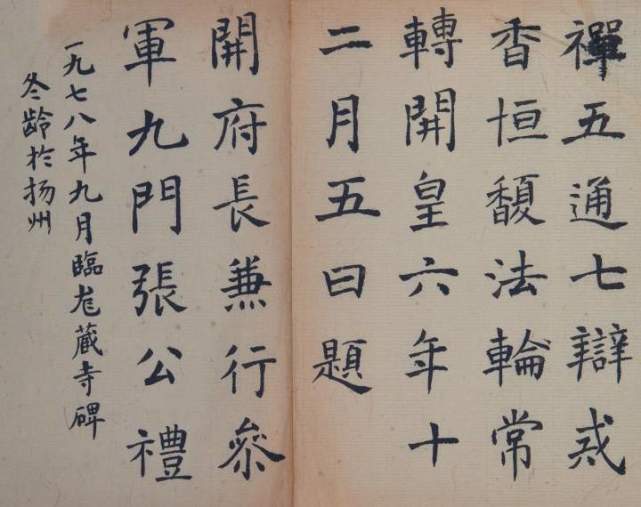 禪五通七辯戒
香恒馥法輪常
轉開皇六年十
二月五日題
開府長兼行叅
軍九門張公禮
一九七八年九月臨龙藏寺碑
冬龄於扬州